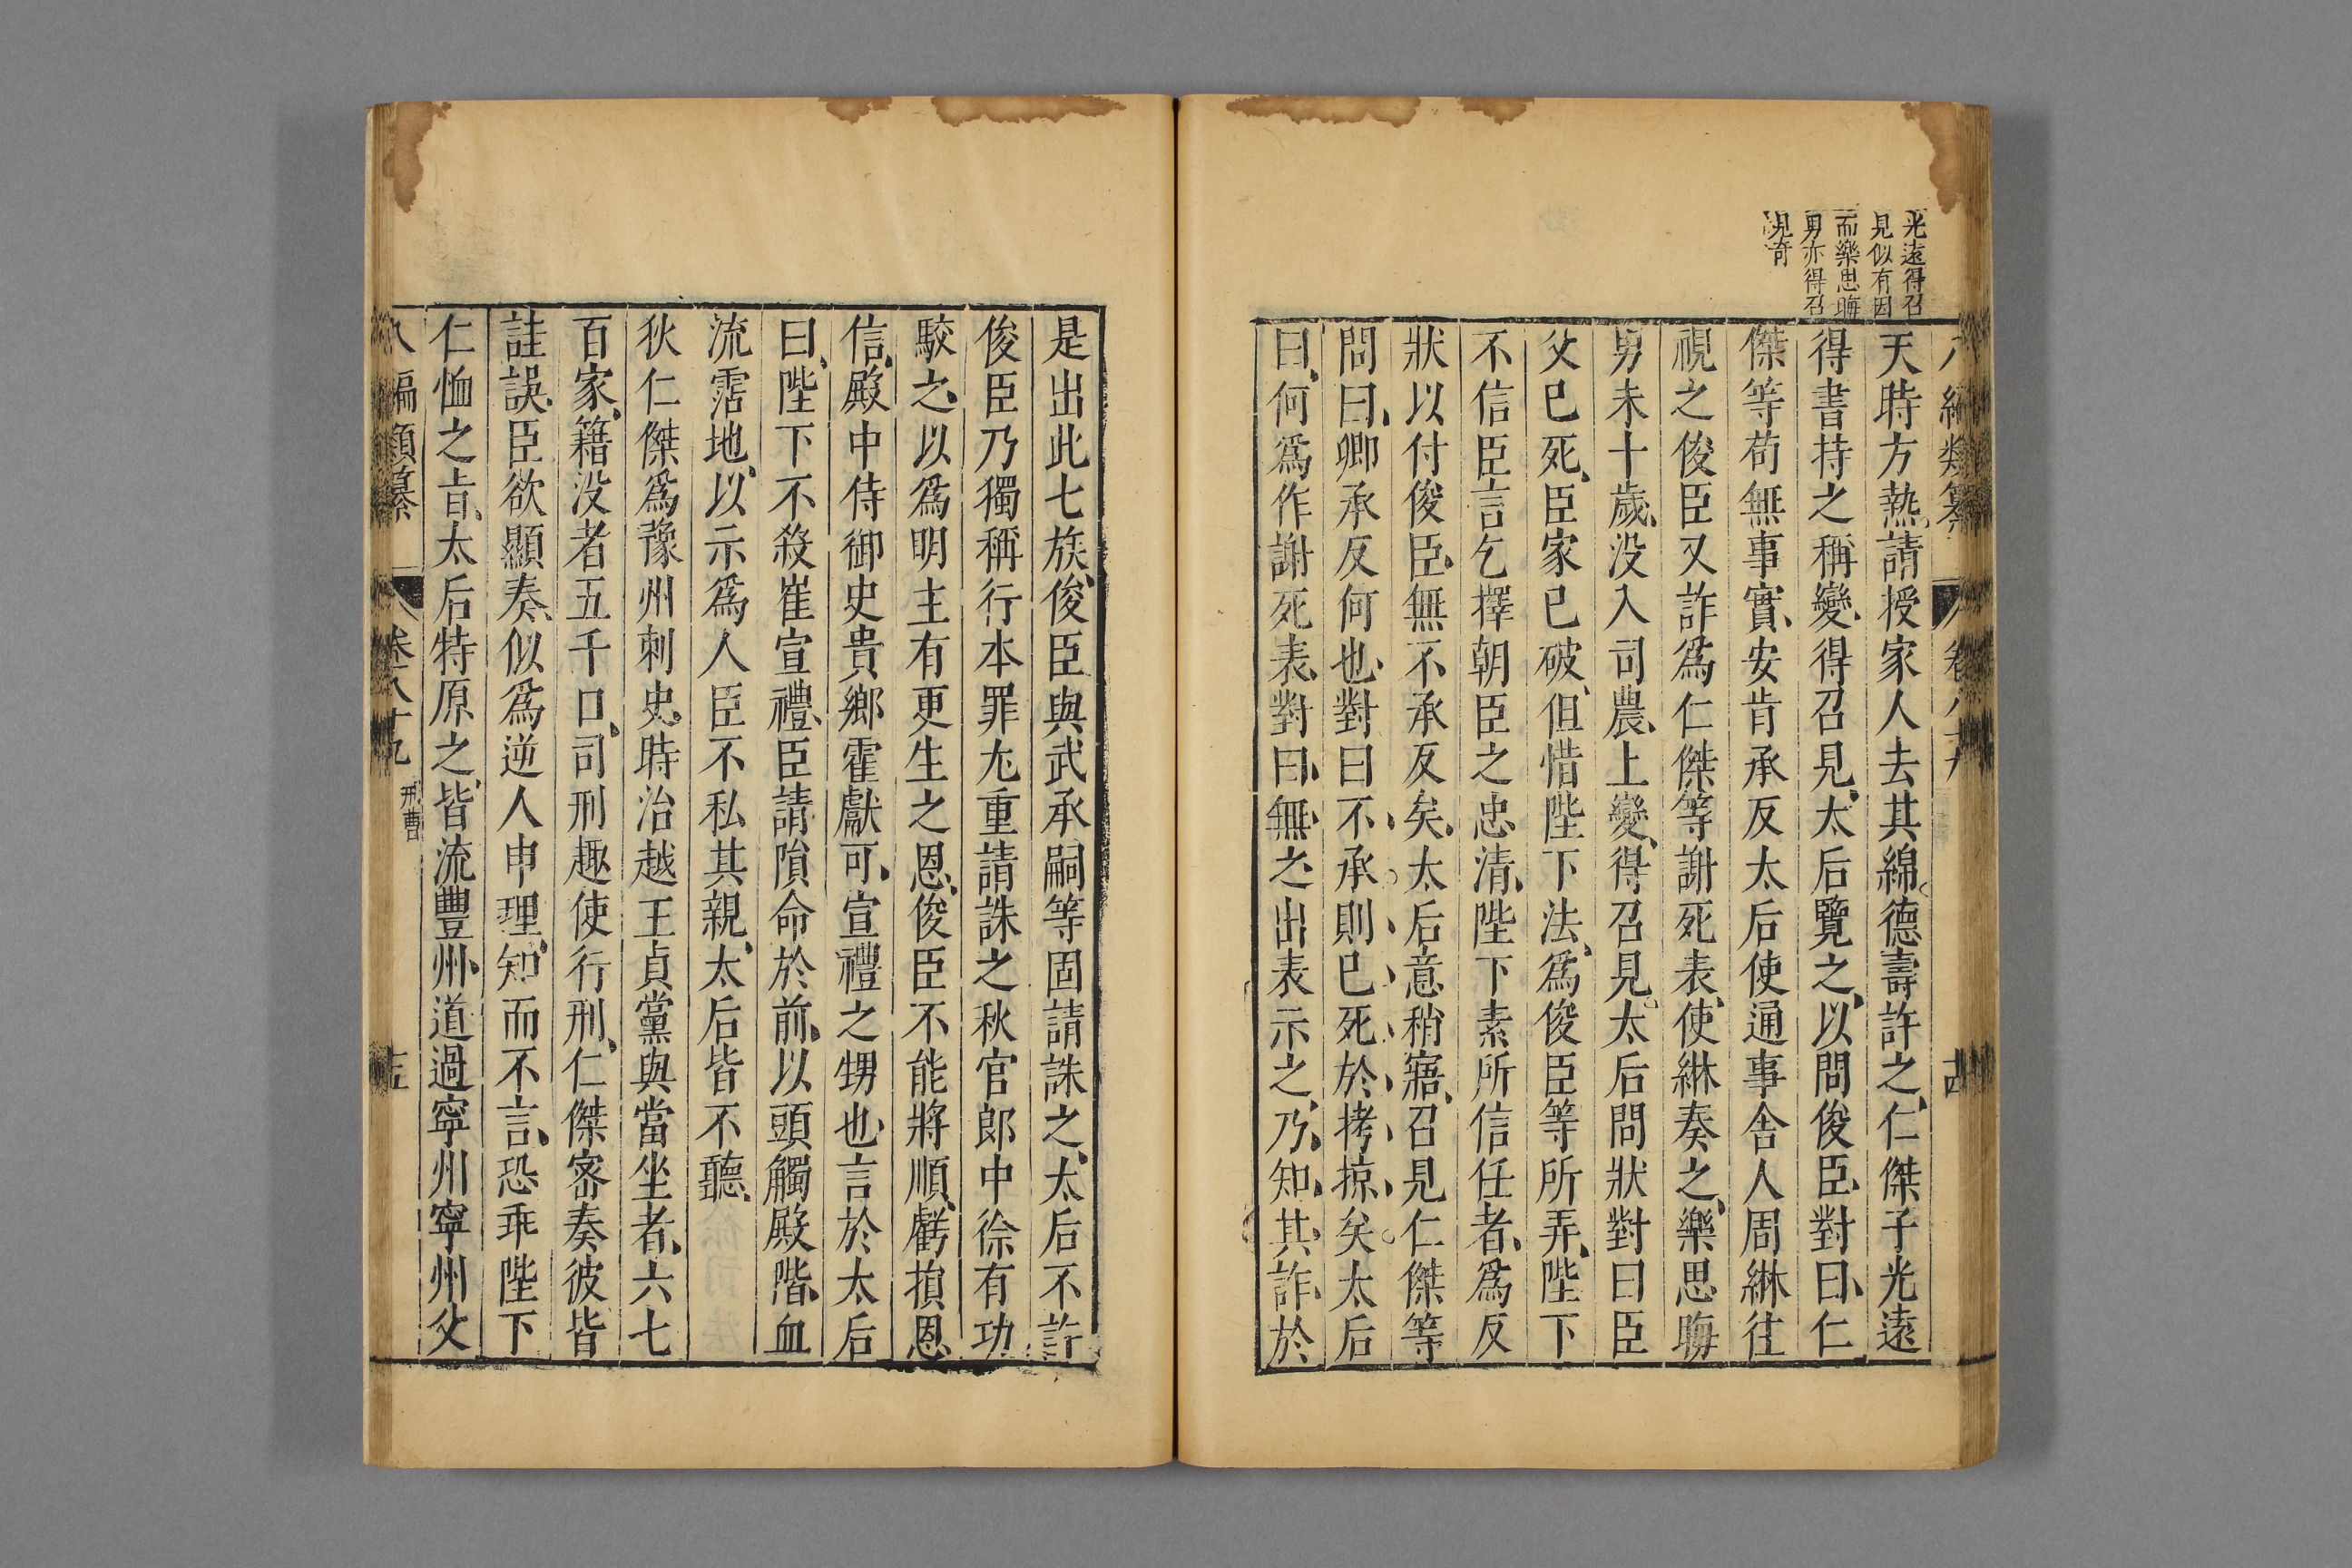 光遠得召
見似有因
而樂思晦
男亦得召
見奇
天時方熱請授家人去其綿德壽許之仁傑子光遠
得書持之稱變得召見太后覽之以問俊臣對曰仁
傑等苟無事實安肯承反太后使通事舍人周綝往
視之俊臣又詐爲仁傑等謝死表使綝奏之樂思晦
男未十歲没入司農上變得召見太后問狀對曰臣
父已死臣家已破但惜陛下法爲俊臣等所弄陛下
不信臣言乞擇朝臣之忠清陛下素所信任者爲反
狀以付俊臣無不承反矣太后意稍寤召見仁傑等
問曰卿承反何也對曰不承則已死於拷掠矣太后
曰何爲作謝死表對曰無之出表示之乃知其詐於
是出此七族俊臣與武承嗣等固請誅之太后不許
俊臣乃獨稱行本罪尤重請誅之秋官郎中徐有功
駮之以爲明主有更生之恩俊臣不能將順虧損恩
信殿中侍御史貴鄉霍獻可宣禮之甥也言於太后
曰陛下不殺崔宣禮臣請隕命於前以頭觸殿階血
流霑地以示爲人臣不私其親太后皆不聽
狄仁傑爲豫州刺史時治越王貞黨與當坐者六七
百家籍没者五千口司刑趣使行刑仁傑密奏彼皆
詿誤臣欲顯奏似爲逆人申理知而不言恐乖陛下
仁恤之旨太后特原之皆流豐州道過寧州寧州父
八編類纂 卷八十九 刑曹